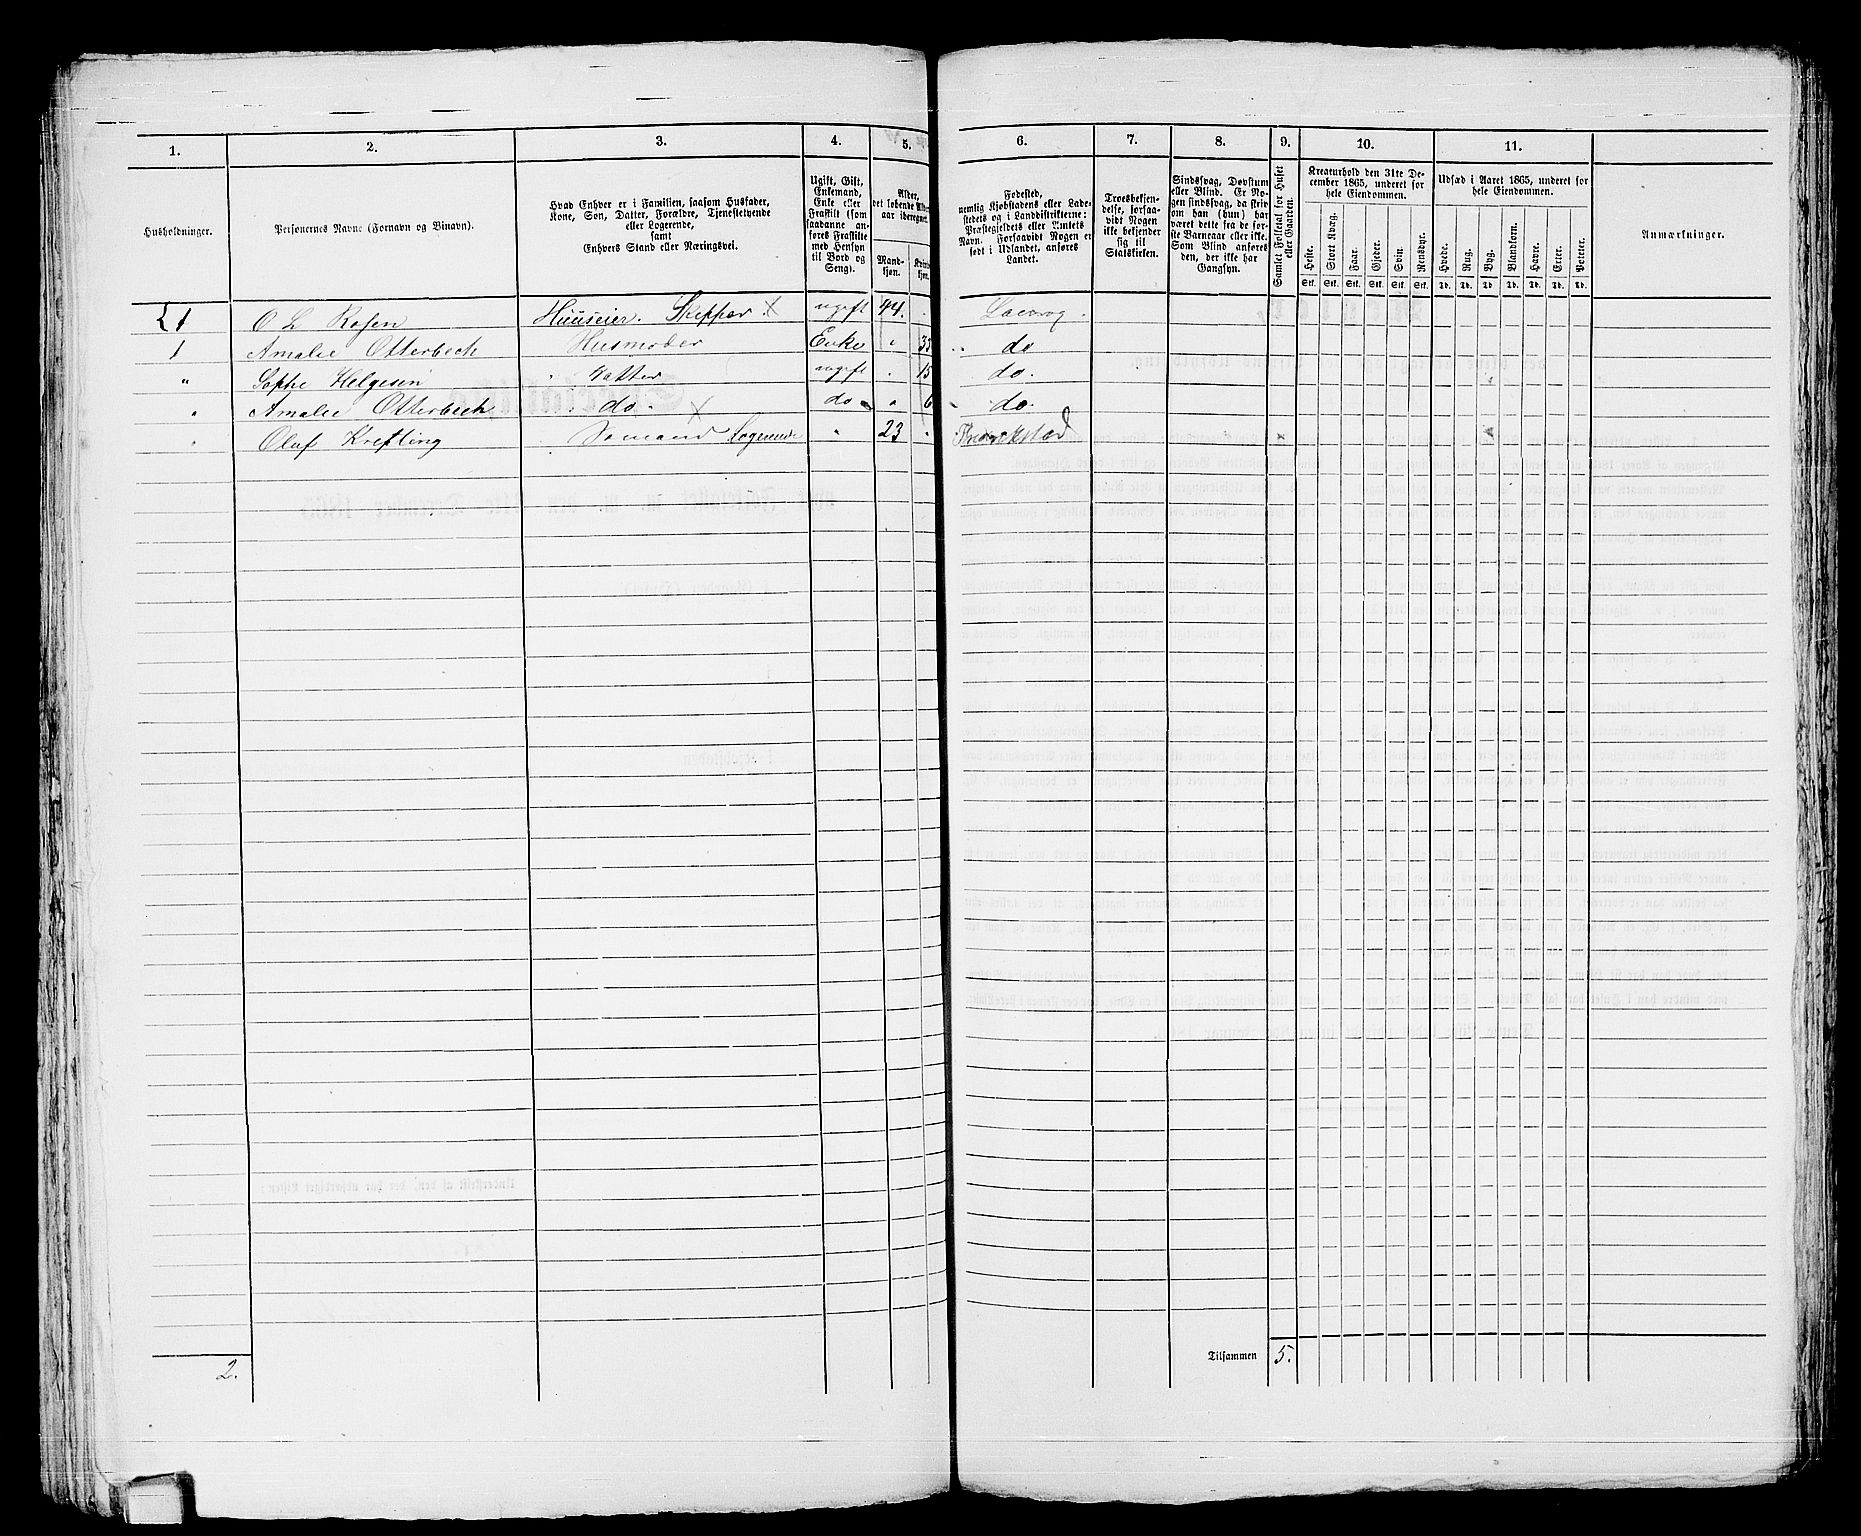 1. 2. 3. 4. 5. 6. 7. 8. 9. 10. 11.
Husholdninger.
Personernes Navne (Fornavn og Binavn).
Hvad Enhver er i Familien, saasom Husfader,
Kone, Søn, Datter, Forældre, Tjenestetyende
eller Logerende,
samt
Enhvers Stand eller Næringsvei.
Ugift, Gift,
Enkemand,
Enke eller
Fraskilt (som
saadanne an-
føres Fraskilte
med Hensyn
til Bord og
Seng).
Alder,
det løbende Alders-
aar iberegnet.
Mand-
kjøn.
Kvinde-
kjøn.
Fødested,
nemlig Kjøbstadens eller Lade-
stedets og i Landdistrikterne:
Præstegjeldets eller Amtets
Navn. Forsaavidt Nogen er
født i Udlandet, anføres
Landet.
Troesbekjen-
delse, forsaa-
vidt Nogen
ikke bekjender
sig til
Statskirken.
Sindssvag, Døvstum
eller Blind. Er No-
gen sindssvag, da skriv
om han (hun) har
været dette fra de før-
ste Barneaar eller ikke.
Som Blind anføres
den, der ikke har
Gangsyn.
Samlet Folketal for Huset
eller Gaarden.
Kreaturhold den 31te De-
cember 1865, underet for
hele Eiendommen.
Heste. Stort Kvæg. Faar. Gjeder. Svin. Rensdyr.
Stk. Stk. Stk. Stk. Stk. Stk.
Udsæd i Aaret 1865, underet for
hele Eiendommen.
Hvede. Rug. Byg. Blandkorn. Havre. Erter. Poteter.
Td. Td. Td. Td. Td. Td. Td.
Anmærkninger.
1 O L Rosen Huuseier. Skipper X ugift 44. Laurvig.
1 Amalie Otterbech Husmoder Enke " 33 " do
" Sophe Helgesen " Datter ugift " 15 do.
" Amalie Otterbech " do. do " 6 " do.
" Oluf Krefting Sømand Logerende X " 23 " Fredrikstad
2.
Tilsammen 5.